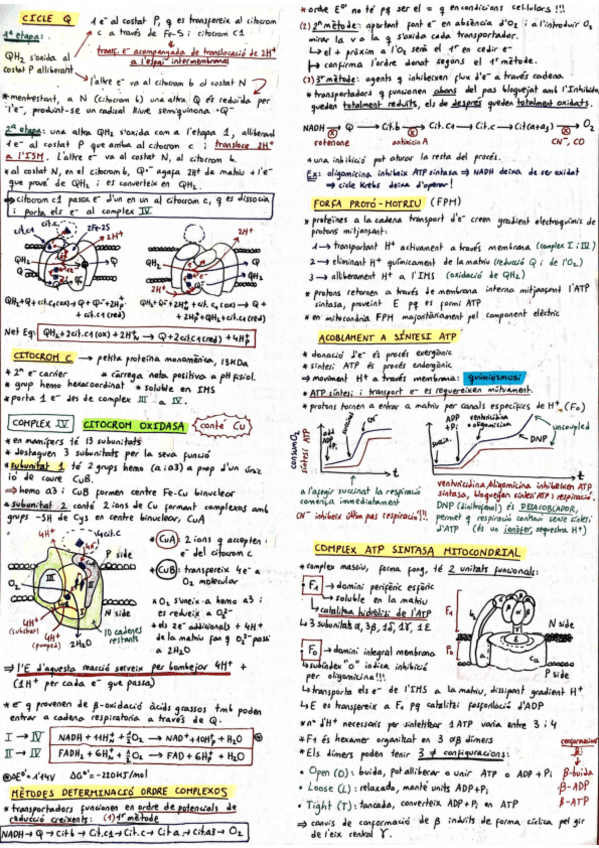 CICLE Q
1 e⁻ al costat P, q es transpereix al citocrom
c a través de Fe-S i citocrom c1
1ª etapa:
trans. e⁻ acompanyada de translocació de 2H⁺
a l'espai intermembranal
QH₂ s'oxida al
costat P alliberant
l'altre e⁻ va al citocrom b al costat N
* mentrestant, a N (citocrom b) una altra Q és reduïda per
l'e⁻, produint-se un radical lliure semiquinona ·Q⁻
2ª etapa: una altra QH₂ s'oxida com a l'etapa 1, alliberant
1 e⁻ al costat P que arriba al citocrom c i transloca 2H⁺
a l'ISM. L'altre e⁻ va al costat N, al citocrom b.
* al costat N, en el citocrom b, Q·⁻ agafa 2H⁺ de matriu + l'e⁻
que prové de QH₂ i es converteix en QH₂.
⇒ citocrom c1 passa e⁻ d'un en un al citocrom c, q es dissocia
i porta els e⁻ al complex IV
cit.c1
cit.c
2Fe-2S
2H⁺
2H⁺
QH₂
Q
Q
QH₂
Q
Net Eq: QH₂+2cit.c1(ox)+2H⁺N → Q+2cit.c1(red)+4H⁺P
CITOCROM C → petita proteïna monomèrica, 13KDa
* 2ⁿ e⁻ carrier * càrrega neta positiva a pH fisiol.
* grup hemo hexacoordinat * soluble en IMS
* porta 1 e⁻ des de complex III a IV.
COMPLEX IV CITOCROM OXIDASA → conté Cu
* en mamífers té 13 subunitats
* destaquen 3 subunitats per la seva funció
* subunitat 1 té 2 grups hemo (a i a3) a prop d'un únic
ió de coure CuB.
⇒ hemo a3 i CuB formen centre Fe-Cu binuclear
* subunitat 2 conté 2 ions de Cu formant complexos amb
grups -SH de Cys en centre binuclear, CuA
4H⁺
4cit.c
P side
O₂
III
I
N side
4H⁺
(substrat)
4H⁺
(pumped)
2H₂O
10 cadenes
restants
* CuA: 2 ions q accepten
e⁻ del citocrom c
* CuB: transfereix 4e⁻ a
O₂ molecular
* O₂ s'uneix a hemo a3 i
es redueix a O₂²⁻
* els 2e⁻ addicionals + 4H⁺
de la matriu fan q O₂²⁻ passi
a 2H₂O
⇒ l'E d'aquesta reacció serveix per bombejar 4H⁺ +
(1H⁺ per cada e⁻ que passa)
* e⁻ q provenen de β-oxidació àcids grassos tmb poden
entrar a cadena respiratoria a través de Q.
I → IV NADH + 11H⁺N + ½O₂ → NAD⁺ + 10H⁺P + H₂O
II → IV FADH₂ + 6H⁺N + ½O₂ → FAD + 6H⁺P + H₂O
ΔE°' = 1'14V ΔG°' = -220KJ/mol
MÈTODES DETERMINACIÓ ORDRE COMPLEXOS
* transportadors funcionen en ordre de potencials de
reducció creixents: (1) 1ʳ mètode
NADH → Q → Cit b → Cit.c1 → Cit.c → Cit a → Cit a3 → O₂
* ordre E°' no té pq ser el = q en condicions cel·lulars!!!
(2) 2ⁿ mètode: aportant font e⁻ en absència d'O₂ i a l'introduir O₂
mirar la v a la q s'oxida cada transportador.
↳ el + pròxim a l'O₂ serà el 1ʳ en cedir e⁻
↳ confirma l'ordre donat segons el 1ʳ mètode.
(3) 3ʳ mètode: agents q inhibeixen flux d'e⁻ a través cadena.
* transportadors q funcionen abans del pas bloquejat amb l'inhibidor
queden totalment reduïts, els de després queden totalment oxidats.
NADH → Q → Cit.b → Cit.c1 → Cit.c → Cit(a+a3) → O₂
rotenone
antimicin A
CN⁻, CO
* una inhibició pot aturar la resta del procés.
Ex: oligomicina inhibeix ATP sintasa ⇒ NADH deixa de ser oxidat
⇒ cicle Krebs deixa d'operar!
FORÇA PROTÓ-MOTRIU (FPM)
* proteïnes a la cadena transport d'e⁻ creen gradient electroquímic de
protons mitjançant:
1 → transportant H⁺ activament a través membrana (complex I i IV)
2 → eliminant H⁺ químicament de la matriu (reducció Q i de l'O₂)
3 → alliberament H⁺ a l'IMS (oxidació de QH₂)
* protons retornen a través de membrana interna mitjançant l'ATP
sintasa, proveint E pq es formi ATP
* en mitocondria FPM majoritàriament pel component elèctric
ACOBLAMENT A SÍNTESI ATP
* donació d'e⁻ és procés exergònic
* síntesi ATP és procés endergònic
⇒ moviment H⁺ a través membrana: quimiosmosi
* ATP síntesi i transport e⁻ es requereixen mútuament.
* protons tornen a entrar a matriu per canals específics de H⁺ (F₀)
consum O₂
síntesi ATP
add
ADP
+Pi
succinat
CN⁻
t
a l'afegir succinat la respiració
comença immediatament
CN⁻ inhibeix última pas respiració!!!
ADP
+Pi
ventúricidina
o oligomicina
succin.
uncoupled
DNP
t
venturicidina/oligomicina inhibeixen ATP
sintasa, bloquejen síntesi ATP i respiració.
DNP (dinitrofenol) és DESACOBLADOR,
permet q respiració continuï sense síntesi
d'ATP (és un ionòfor, segrestra H⁺)
COMPLEX ATP SINTASA MITOCONDRIAL
* complex massiu, forma fong, té 2 unitats funcionals:
F₁ → domini perifèric esfèric
↳ soluble en la matriu
↳ catalitza hidròlisi de l'ATP
↳ 3 subunitats α, 3β, 1δ, 1γ, 1ε
F₀ → domini integral membrana
↳ subíndex "o" indica inhibició
per oligomicina!!!
↳ transporta els e⁻ de l'IMS a la matriu, dissipant gradient H⁺
↳ E es transfereix a F₀ pq catalitzi fosforilació d'ADP
F₁
F₀
N side
P side
* nº d'H⁺ necessaris per sintetitzar 1 ATP varia entre 3 i 4
* F₁ és hexàmer organitzat en 3 αβ dímers
* Els dímers poden tenir 3 ≠ configuracions:
conformacions
β:
• Open (O): buida, pot alliberar o unir ATP o ADP + Pi
β-buida
• Loose (L): relaxado, manté units ADP + Pi
β-ADP
• Tight (T): tancada, converteix ADP + Pi en ATP
β-ATP
⇒ canvis de conformació de β induïts de forma cíclica pel gir
de l'eix central γ.